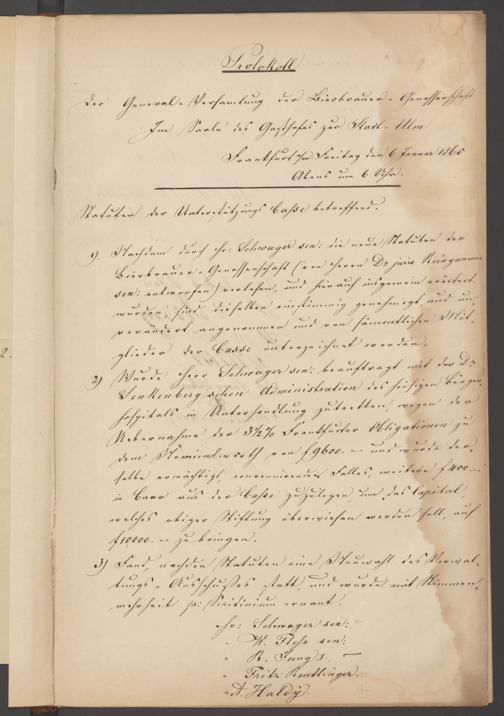 Protokoll
Der General-Versamlung der Bierbrauer-Genossenschaft
Im Saale des Gasthofes zur Stadt-Ulm
Frankfurt a/m Freitag den 6 Januar 1865
Abens um 6 Uhr.
Statuten der Unterstützungs Casse betreffend.
1) Nachdem durch Hr: Schwager sen: die neue Statuten der
Bierbrauer-Genossenschaft (von Herrn Dr juris
sen: entworfen) verlesen, und hierauf insgemein erörtert
wurden, sind dieselben einstimmig genehmigt und un
verändert angenommen und von sämmtlichen Mit
glieder der Casse unterzeichnet worden.
2) Wurde Herr Schwager sen: beauftragt mit der Dr
Senkenberg'schen Administration des hiesigen Bürger
hospitals in Unterhandlung zutretten, wegen der
Uebernahme der 3½% Frankfurter Obligationen zu
dem Nominalwerth von f 9600.- und wurde der
selbe ermächtigt, Falles, weitere f 400.-
in Baar aus der Casse zuzulegen um das Capital,
welches obiger Stiftung überwiesen werden soll, auf
f 10000.- zu bringen.
3) Fand, nach den Statuten eine Neuwahl des Verwal-
tungs-Ausschusses statt, und wurde mit Stimmen
mehrheit pr: Scrutinium ernant.
Hr: Schwager sen:
" W. Flohr sen:
" B. Jung I.
" Fritz Reutlinger.
" A. Haldy.
2.